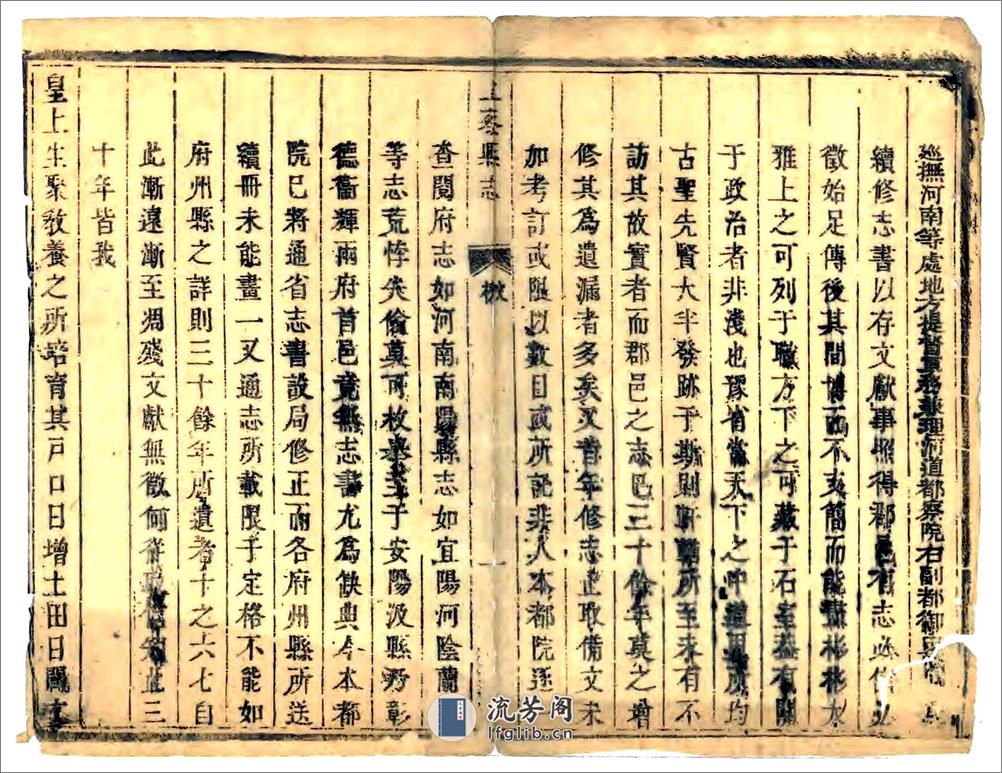 巡撫河南等處地方提督軍務兼理河道都察院右副都御
續修志書以存文獻事照得郡邑有志必
徵始足傳後其間博而不簡而能彬彬大
雅上之可列于職方下之可藏于石室蓋有關
于政治者非淺也豫省當天下之中道里所均
古聖先賢大半發跡于斯則所至未有不
訪其故實者而郡邑之志邑三十餘年莫之增
修其爲遺漏者多矣又昔年修志止取備文未
加考訂或限以數目或所託非人本都院逐
上蔡縣志 檄 一
查閱府志如河南南陽縣志如宜陽河陰蘭
等志荒悖失倫莫可枚舉至于安陽汲縣乃彰
德衞輝兩府首邑竟無志書尤爲缺典今本都
院已將通省志書設局修正而各府州縣所送
續冊未能畫一又通志所載限于定格不能如
府州縣之詳則三十餘年所遺者十之六七自
此漸遠漸至凋殘文獻無徵何從三
十年皆我
皇上生聚敎養之所培育其戸口日增土田日闢
流芳阁
lfglib.cn